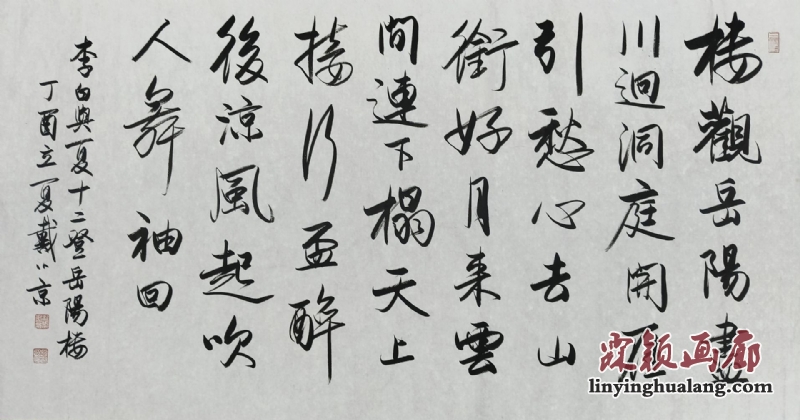 楼觀岳陽盡
川迥洞庭開雁
引愁心去山
銜好月来雲
間連下榻天上
接行盃醉
後涼風起吹
人舞袖回
李白與夏十二登岳陽楼
丁酉立夏戴小京
霖颖画廊
linyinghualang.com